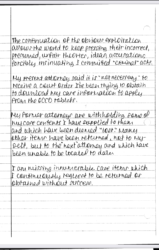 The continuation of the obvious exploitation
allows the world to keep forcing their incorrect,
presumed, unfair theories, ideas, accusations
forcibly insinuating I committed "criminal" acts.
My present attorney said it is "not necessary" to
receive a court order I've been trying to obtain
to download my care information to apply
from the 6000 tablet.
My former attorneys are withholding some of
my care contents I have supplied to them
and which have been denied "lost". Many
other items have been returned, not to my-
self, but to the next attorney and which have
been unable to be located to date.
I am missing innumerable care items which
I continuously request to be returned or
obtained without success.